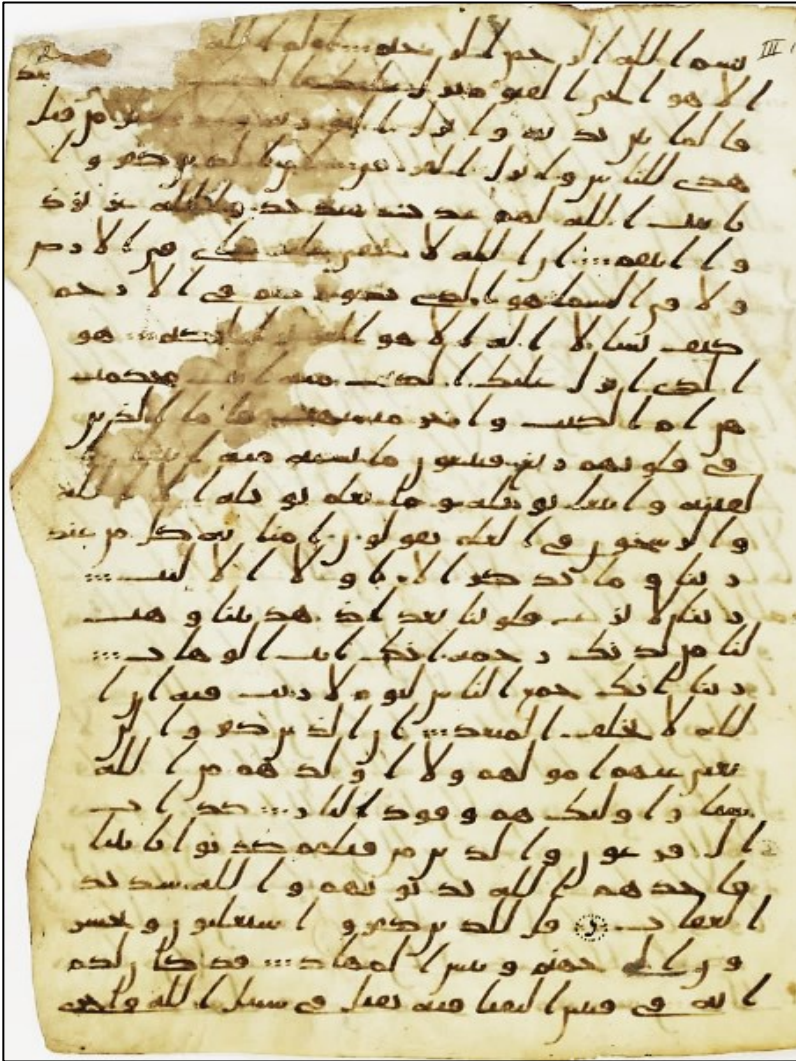 بسم الله الرحمن الرحيم الم الله
الا هو الحي القيوم نزل عليك الكتب مصد
قا لما بين يديه وانزل التورية من قبل
هدى للناس وانزل الفرقن ان الذين كفروا
بايت الله لهم عذاب شديد والله عزيز ذو
انتقم ان الله لا يخفى عليه شي في الارض
ولا في السما هو الذي يصوركم في الارحم
كيف يشا لا اله الا هو العزيز الحكيم هو
الذي انزل عليك الكتب منه ايت محكمت
هن ام الكتب واخر متشبهت فاما الذين
في قلوبهم زيغ فيتبعون ما تشبه منه ابتغا ا
لفتنة وابتغا تويله وما يعلم تويله الا الله
والرسخون في العلم يقولون امنا به كل من عند
ربنا وما يذكر الا اولوا الالبب
ربنا لا تزغ قلوبنا بعد اذ هديتنا وهب
لنا من لدنك رحمة انك انت الوهاب
ربنا انك جمع الناس ليوم لا ريب فيه ان ا
لله لا يخلف الميعد ان الذين كفروا لن
تغني عنهم امولهم ولا اولدهم من الله
شيا واوليك هم وقود النار كداب
ال فرعون والذين من قبلهم كذبوا بايتنا
فاخذهم الله بذنوبهم والله شديد
العقاب قل للذين كفروا ستغلبون وتحشر
ون الى جهنم وبيس المهاد قد كان لكم
اية في فيتين التقتا فية تقتل في سبيل الله واخرى